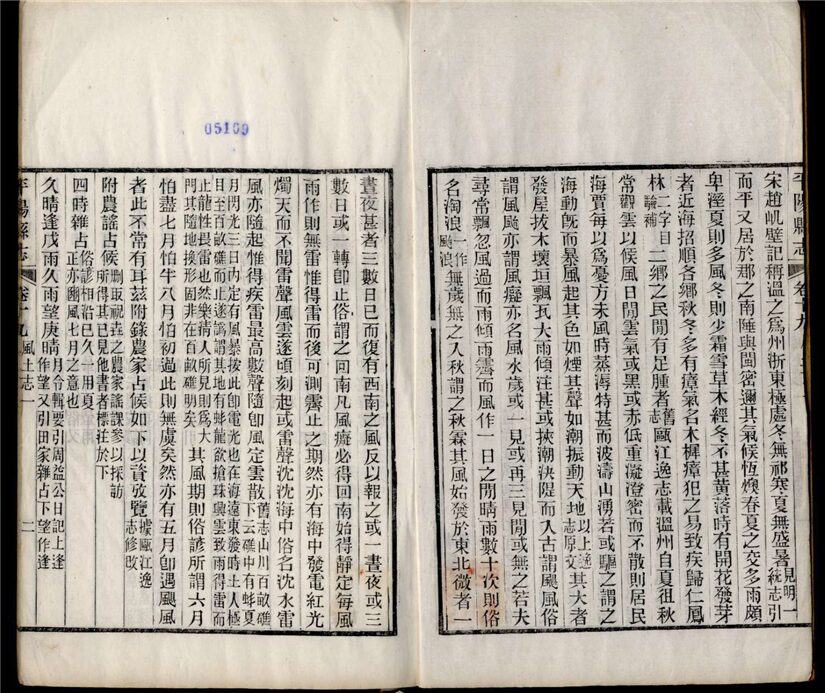 平陽縣志
卷十九
宋趙㞦壁記稱溫之為州浙東極處冬無祁寒夏無盛暑見明一統志引
而平又居於郡之南陲與閩密邇其氣候恆燠春夏之交多雨頗
卑溼夏則多風冬則少霜雪草木經冬不甚黃落時有開花發芽
者近海招順各鄉秋冬多有瘴氣名木樨瘴犯之易致疾歸仁鳳
林二字目驗補二鄉之民閒有足腫者舊志甌江逸志載溫州自夏徂秋
常以候風日閒雲氣或黑或赤低重凝澄密而不散則居民
海賈每以為憂方未風時蒸溽特甚而波濤山湧若或驅之謂之
海動旣而暴風起其色如煙其聲如潮振動天地以上逸志原文其大者
發屋拔木壞垣飄瓦大雨傾注甚或挾潮決隄而入古謂颶風俗
謂風颱亦謂風癡亦名風水歲或一見或再三見閒或無之若夫
尋常飄忽風過而雨傾雨霽而風作一日之閒晴雨數十次則俗
名淘浪一作颱浪無歲無之入秋謂之秋霖其風始發於東北微者一
晝夜甚者三數日已而復有西南之風反以報之或一晝夜或三
數日或一轉卽止俗謂之回南凡風癡必得回南始得靜定每風
雨作則無雷惟得雷而後可測霽止之期然亦有海中發電紅光
燭天而不聞雷聲風雲遂頃刻起或雷聲沈沈海中俗名沈水雷
風亦隨起惟得疾雷最高數聲隨卽風定雲散舊志山川百畝礁下云礁中有蚌夏
月閃光三日內定有風暴按此卽電光也在海遠東發時土人極
目至百畝礁而止遂謂其地有蚌龍欲搶珠興雲致雨得雷而
止龍性畏雷也然樂清人所見則為大
門其隨地換形固非在百畝礁明矣其風期則俗諺所謂六月
怕盡七月怕半八月怕初過此則無虞矣然亦有五月卽遇颶風
者此不常有耳茲附錄農家占候如下以資攷覽據甌江逸志修改
附農謠占候刪取視犇之農家謠課參以採訪所得其已見他書者標注於下
四時雜占俗諺相沿已久一用夏正亦豳風七月之意也
久晴逢戊雨久雨望庚晴月令輯要引周益公日記上逢作望又引田家雜占下望作逢
平陽縣志
卷十九
風土志一
二
05109